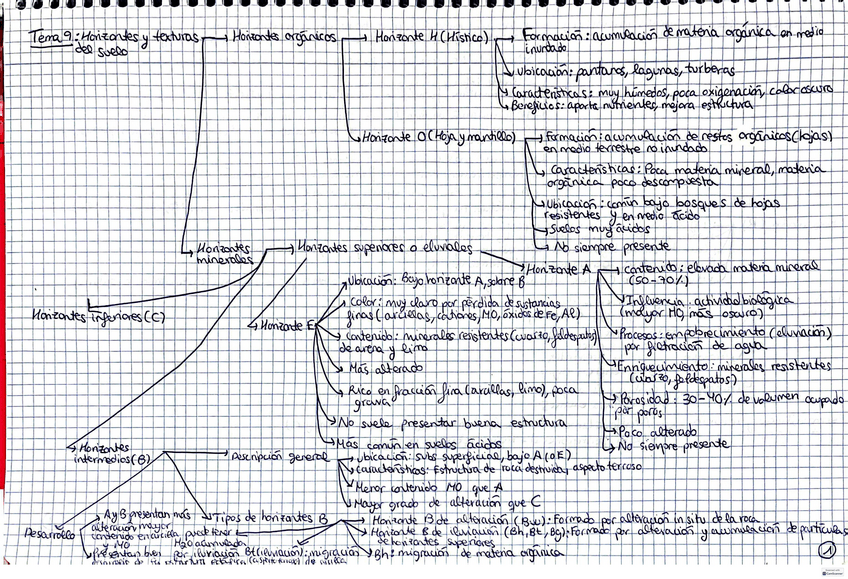 Tema 9: Horizontes y texturas
del suelo
Horizontes orgánicos
Horizonte H (Hístico)
Formación: acumulación de materia orgánica en medio
inundado
Ubicación: pantanos, lagunas, turberas
Características: muy húmedos, poca oxigenación, color oscuro
Beneficios: aporta nutrientes, mejora estructura
Horizonte O (Hoja y mantillo)
Formación: acumulación de restos orgánicos (hojas)
en medio terrestre no inundado
Características: Poca materia mineral, materia
orgánica poco descompuesta
Ubicación: común bajo bosques de hojas
resistentes y en medio ácido
Suelos muy ácidos
No siempre presente
Horizontes
minerales
Horizontes superiores o eluviales
Horizonte A
Contenido: elevada materia mineral
(50-90%)
Influencia: actividad biológica
(mayor MO, más oscuro)
Procesos: empobrecimiento (eluviación)
por filtración de agua
Enriquecimiento: minerales resistentes
(cuarzo, feldespatos)
Porosidad: 30-40% de volumen ocupado
por poros
Poco alterado
No siempre presente
Horizonte E
Ubicación: Bajo horizonte A, sobre B
Color: muy claro por pérdida de sustancias
finas (arcillas, cationes, MO, óxidos de Fe, Al)
Contenido: minerales resistentes (cuarzo, feldespatos)
de arena y limo
Más alterado
Rico en fracción fina (arcillas, limo), poca
grava
No suele presentar buena estructura
Más común en suelos ácidos
Horizontes inferiores (C)
Horizontes
intermedios (B)
Descripción general
Ubicación: subsuperficial, bajo A (o E)
Características: Estructura de roca destruida, aspecto terroso
Menor contenido MO que A
Mayor grado de alteración que C
Tipos de horizontes B
Horizonte B de alteración (Bw): Formado por alteración in situ de la roca
Horizonte B de iluviación (Bh, Bt, Bg): Formado por alteración y acumulación de partículas
de horizontes superiores
Bh: migración de materia orgánica
Desarrollo
A y B presentan más
alteración, mayor
contenido en arcilla
y MO
puede tener
H2O acumulada
Presentan bien
por iluviación
Bt (iluviación): migración
de arcilla
1